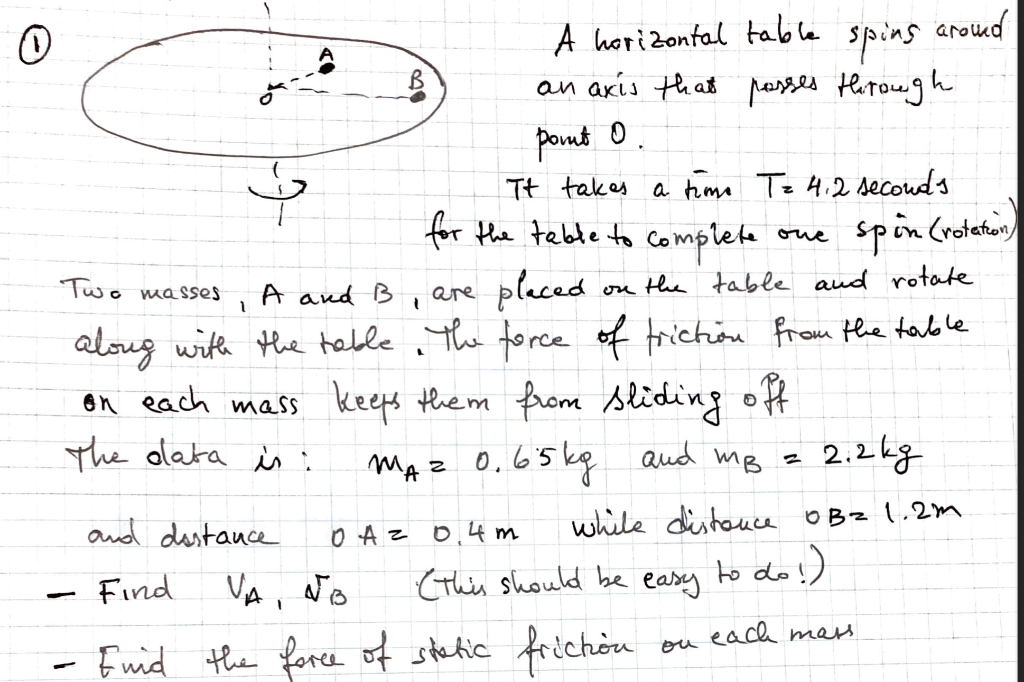 ①
A horizontal table spins around
A
B
an axis that passes through
O
point O.
It takes a time T= 4.2 seconds
for the table to complete one spin (rotation)
Two masses, A and B, are placed on the table and rotate
along with the table. The force of friction from the table
on each mass keeps them from sliding off
The data is: mA = 0.65 kg and mB = 2.2 kg
and distance OA = 0.4 m while distance OB = 1.2 m
- Find VA, VB (This should be easy to do!)
- Find the force of static friction on each mass